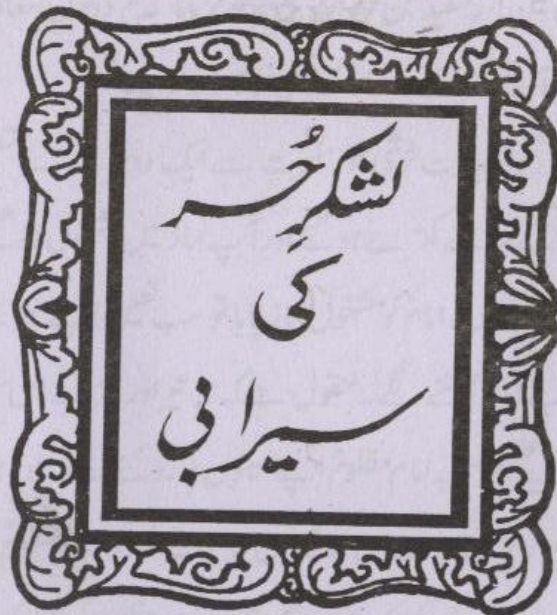 لشکرِ حُر
کی
سیرابی